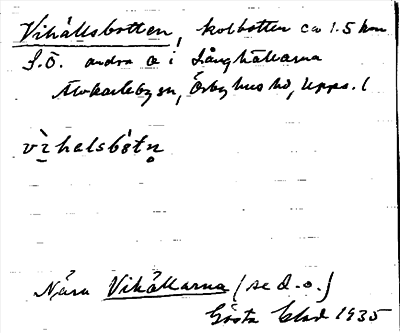 Vihällsbotten, kolbotten ca 1.5 km
S.Ö. andra a i Långhällarna
Älvkarleby sn, Örbyhus hd, Upps. l
vìhelsbòtn̥
Nära Vihällarna (se d.o.)
Gösta Edad 1935